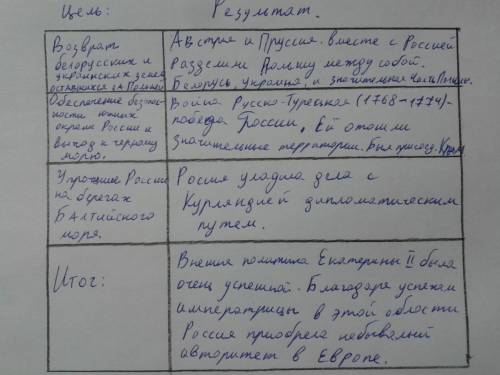 Цель: Результат.
Возврат
белорусских и
украинских земель
оставшихся за Польшей
Австрия и Пруссия вместе с Россией
разделили Польшу между собой.
Белорусь, украина, и значительная часть Польши.
Обеспечение безопас-
ности южных
окраин России и
выход к чёрному
морю.
Война Русско-Турецкая (1768-1774)-
победа России. Ей отошли
значительные территории. Был присоед. Крым
Упрочение России
на берегах
Балтийского
моря.
Росия уладила дела с
Курляндией дипломатическим
путем.
Итог:
Внешняя политика Екатерины II была
очень успешной. Благодаря успехам
императрицы в этой области
Россия приобрела небывалый
авторитет в Европе.